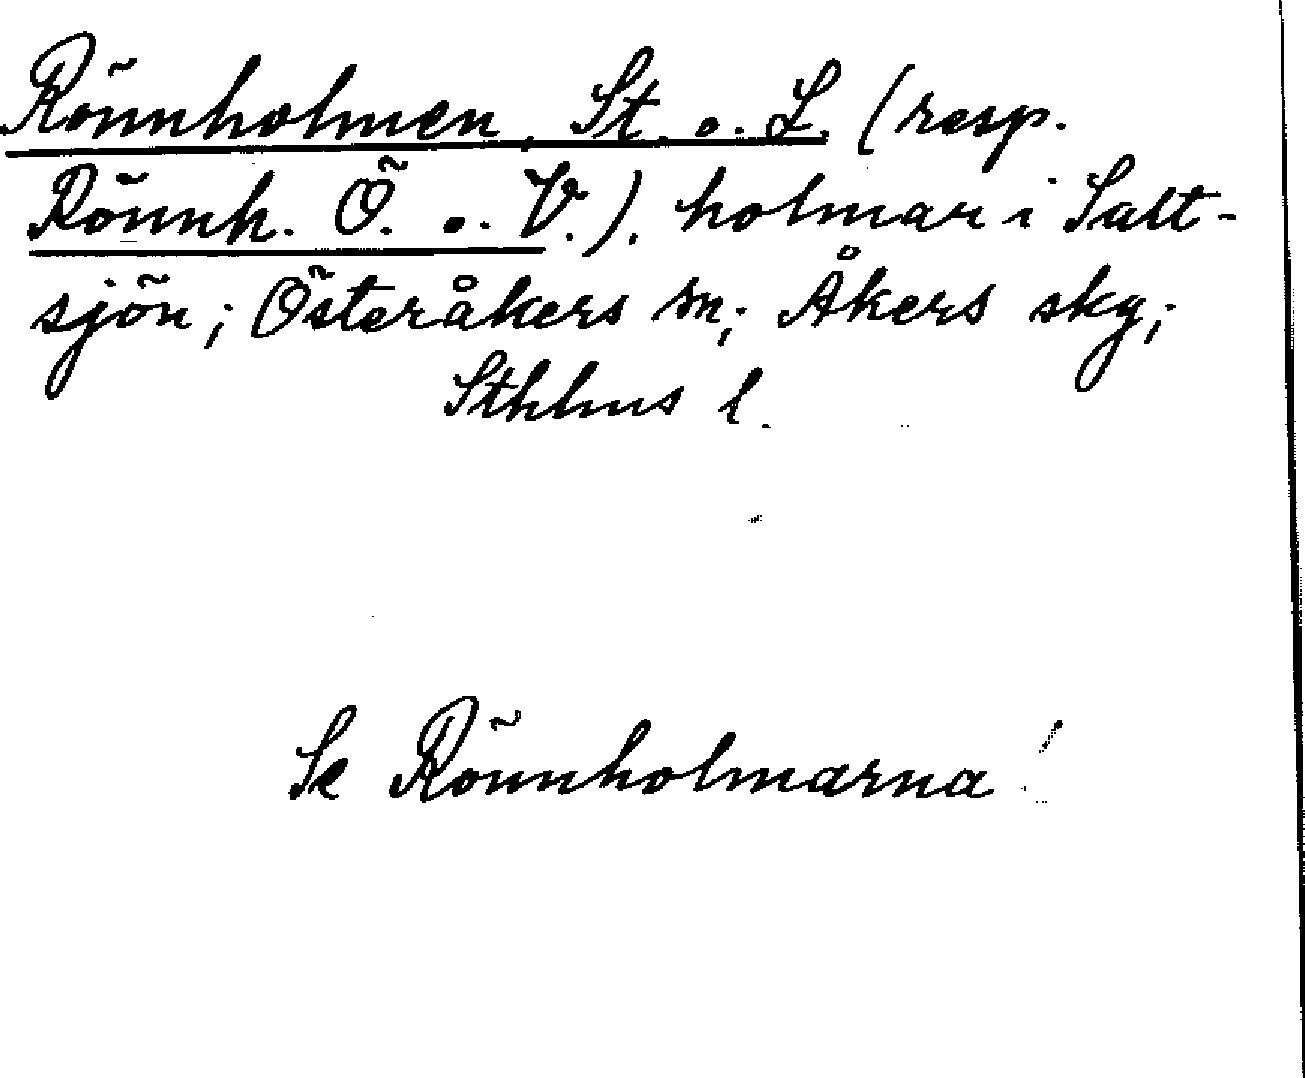 Rönnholmen, St. o. L. (resp.
Rönnh. Ö. o. V.). holmar i Salt-
sjön; Österåkers sn; Åkers skg;
Sthlms l.
Se Rönnholmarna!